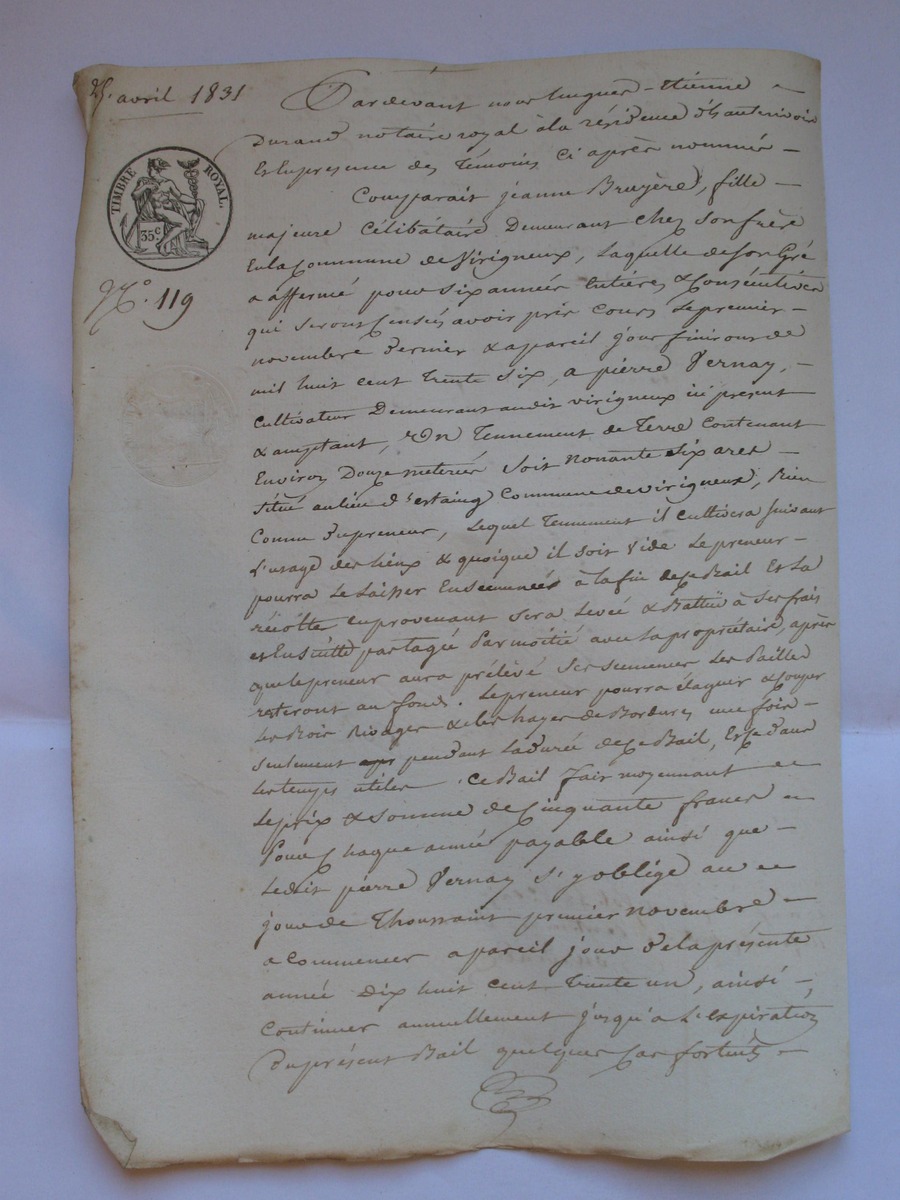 25. avril 1831
TIMBRE ROYAL.
35c.
N°. 119
Pardevant nous hugues-Etienne
Durand notaire royal à la résidence d'hauterivoire
Et En présence des Témoins Ci après nommés
Comparait jeanne Bruyère, fille
majeure Célibataire Demeurant chez son frère
En la Commune de Virigneux, Laquelle de son Gré
a affermé pour six années Entières & Consécutives
qui seront Censées avoir pris cours Le premier
novembre Dernier & a pareil jour finiront de
mil huit cent trente six, a pierre Vernay,
Cultivateur Demeurant audit virigneux ici présent
& acceptant, Un Tennement de Terre Contenant
Environ Douze méterées soit nonante six ares
Situé au lieu d'Estaing Commune de virigneux, Bien
Connu du preneur, Lequel Tennement il cultivera suivant
L'usage des Lieux & quoique il soit Vide Le preneur
pourra Le Laisser Ensemencé à la fin de ce Bail Et La
récolte en provenant sera Levée & Battue à ses frais
et Ensuitte partagée Par moitié avec La propriétaire, après
que le preneur aura prélevé ses semences Les Pailles
resteront au fonds. Le preneur pourra élaguer & Couper
Les Bois Rivages & les hayes de Bordures une fois
seulement pendant La Durée de Ce Bail, Et Ce Dans
Les temps utiles. Ce Bail fait moyennant
Le prix & Somme de Cinquante francs
Pour Chaque année payable ainsi que
Ledit pierre Vernay s'y oblige au
jour de Thoussaint premier novembre
a Commencer a pareil jour De la présente
année Dix huit cent Trente un, ainsi
Continuer annuellement jusqu'a L'expiration
Du présent Bail quelques Cas fortuits